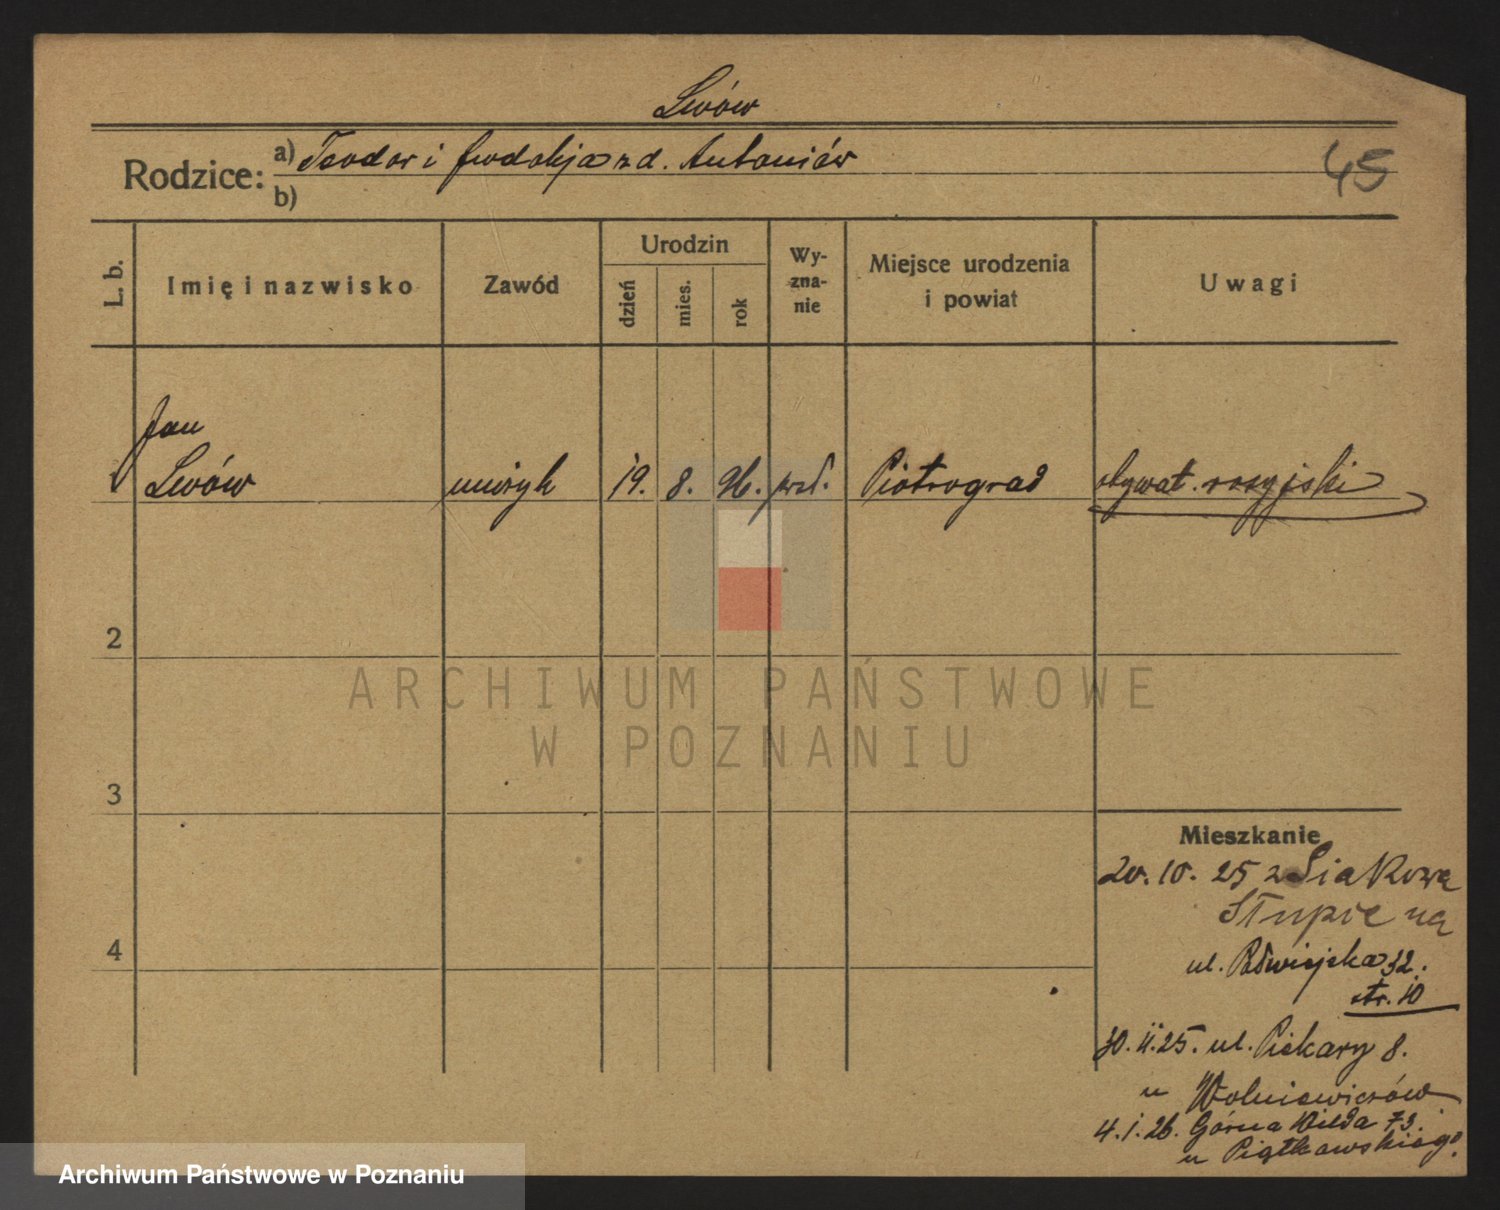 Lwów
Rodzice: a) Teodor i Eudokja z d. Antoniów
b)
45
L. b. Imię i nazwisko Zawód Urodzin dzień mies. rok Wyznanie Miejsce urodzenia i powiat Uwagi
Jan
1 Lwów muzyk 19. 8. 96. prał. Piotrograd obywat. rosyjski
2
ARCHIWUM PAŃSTWOWE
W POZNANIU
3
Mieszkanie
20. 10. 25 z
ul. Półwiejska 32.
4
str. 10
30. 11. 25. ul. Piekary 8.
u Wolniewiczów
4. 1. 26. Górna Wilda 73.
u Piątkowskiego.
Archiwum Państwowe w Poznaniu